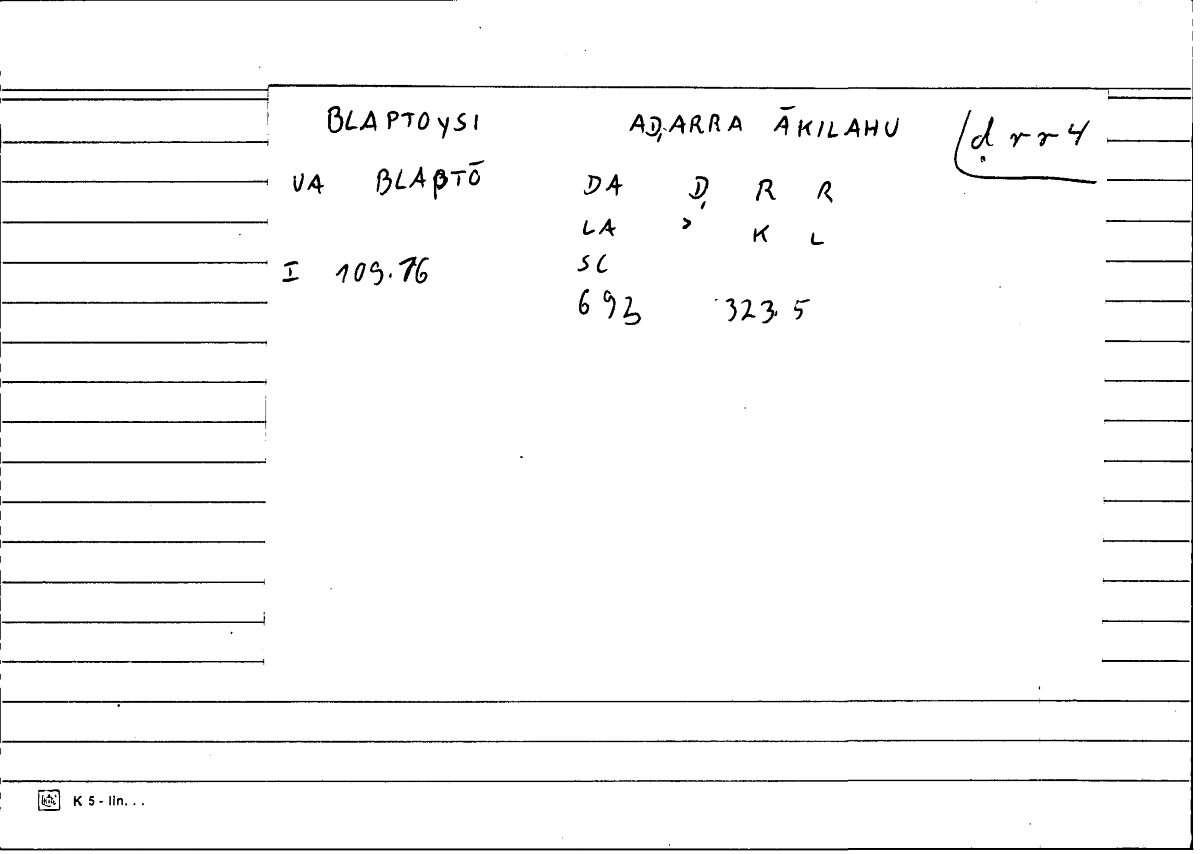 BLAPTOYSI AḌARRA ĀKILAHU ḍrr4
VA BLAPTŌ DA Ḍ R R
LA ʾ K L
I 109.76 SC
693 323.5
K 5 - lin. . .